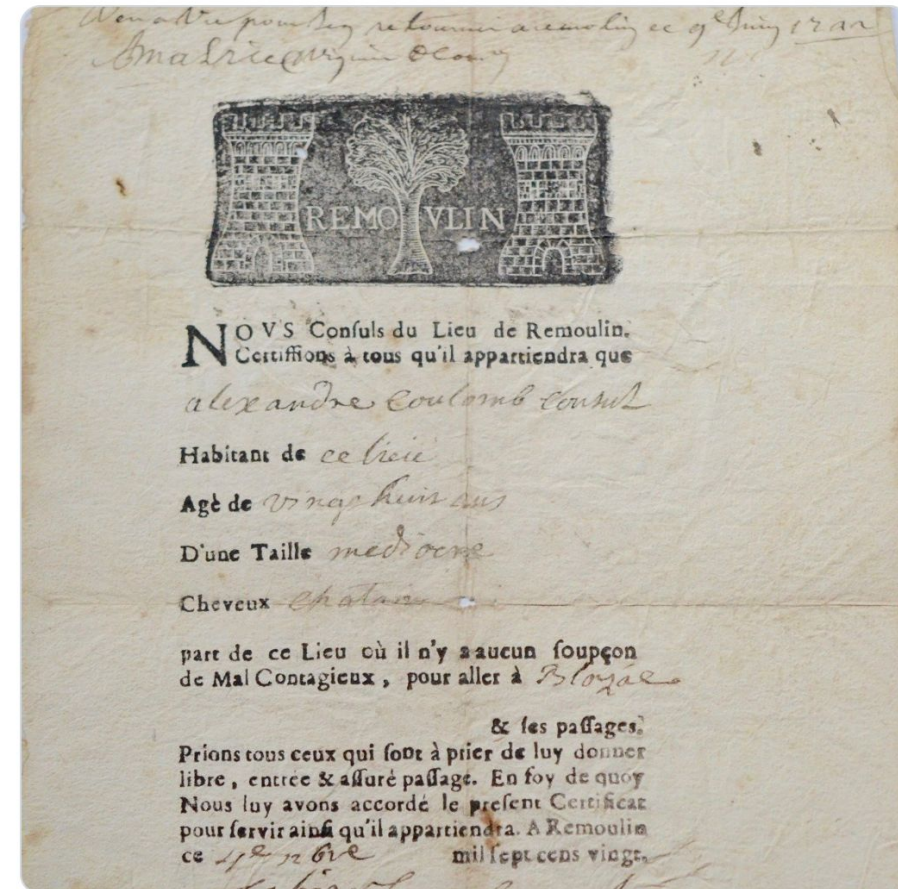 pour retourner a remolin ce 9e 
REMOVLIN
NOVS Conſuls du Lieu de Remoulin,
Certiffions à tous qu'il appartiendra que
alexandre coulomb conſul
Habitant de ce lieu
Agè de vingt huit ans
D'une Taille mediocre
Cheveux chatain
part de ce Lieu où il n'y a aucun ſoupçon
de Mal Contagieux, pour aller à
& ſes paſſages.
Prions tous ceux qui ſont à prier de luy donner
libre, entrée & aſſuré paſſage. En foy de quoy
Nous luy avons accordé le preſent Certificat
pour ſervir ainſi qu'il appartiendra. A Remoulin
ce 9bre mil ſept cens vingt.